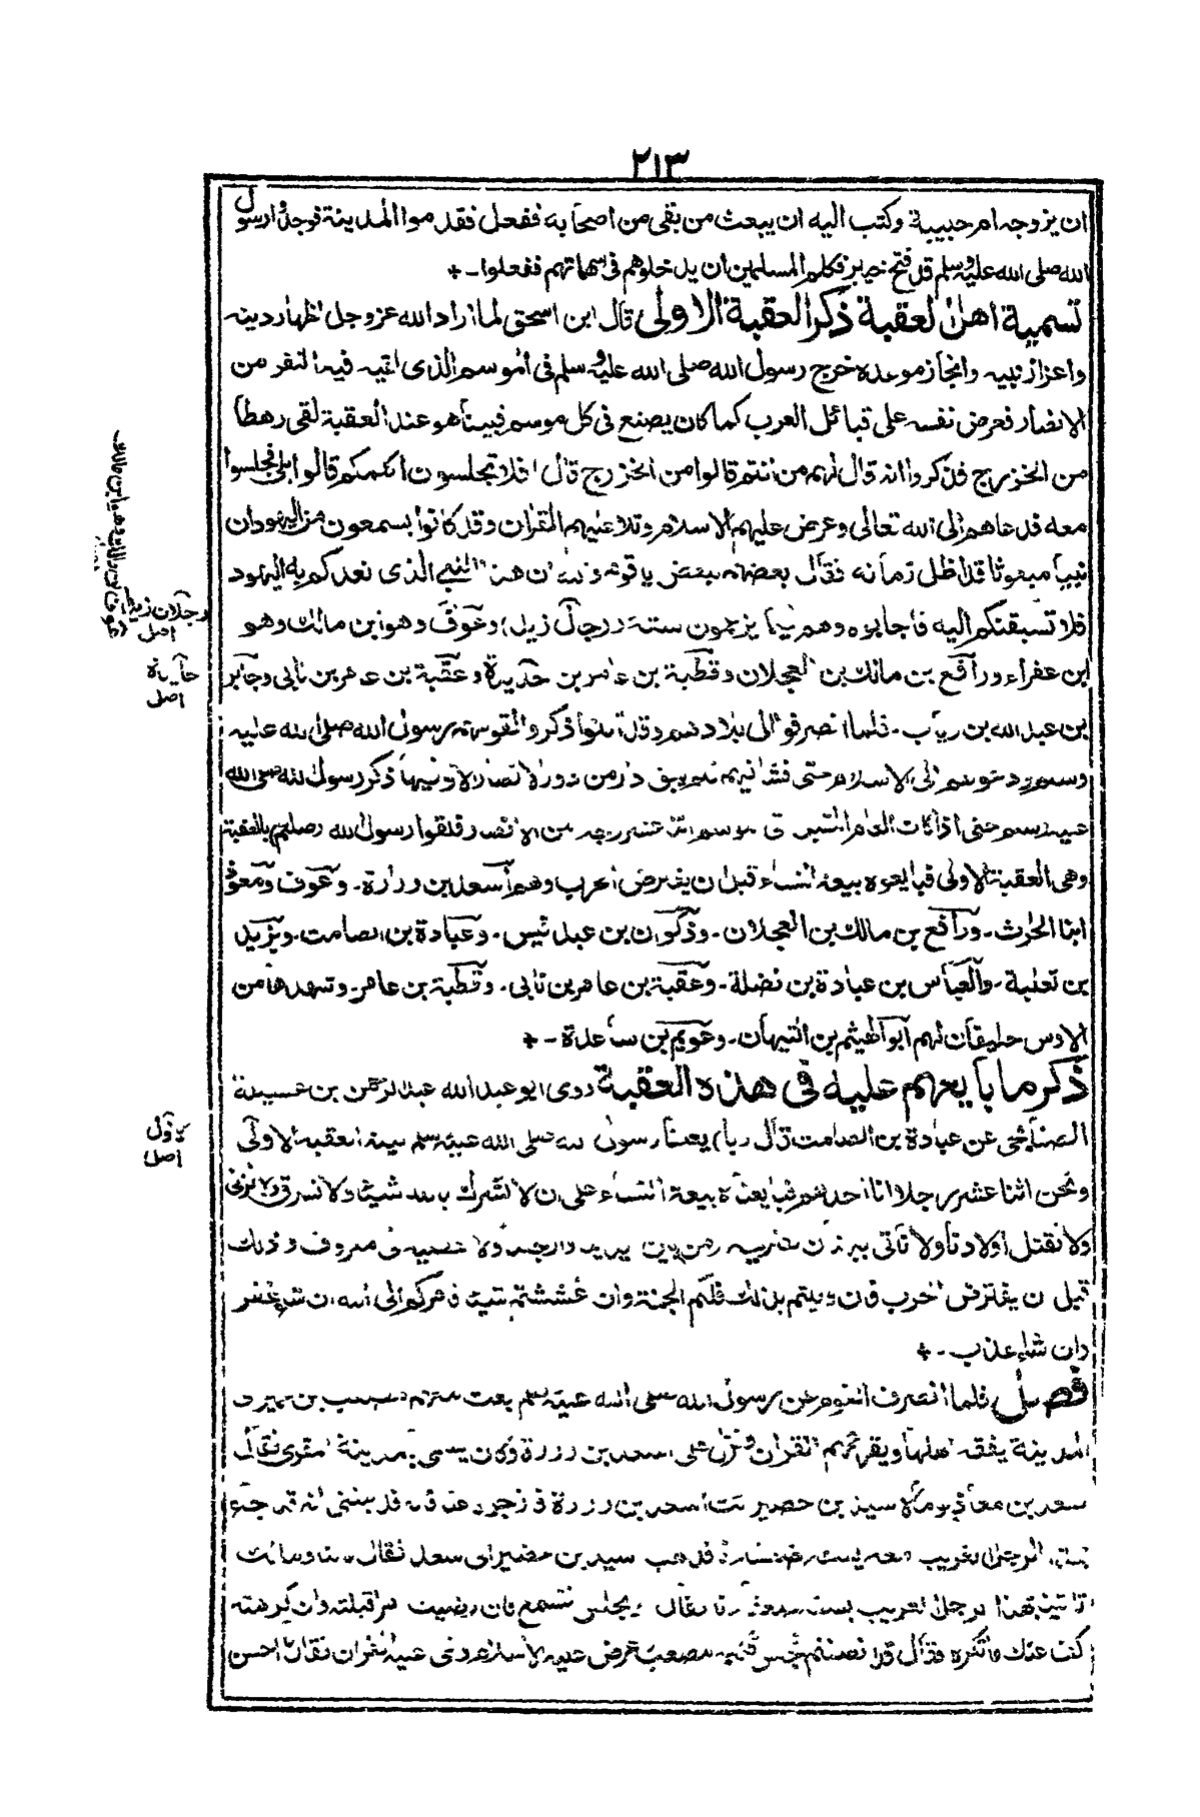 ٢١٣
ان يزوجه ام حبيبة وكتب اليه ان يبعث من بقى من اصحابه ففعل فقدموا المدينة فوجدوا رسول
الله صلى الله عليه وسلم قد فتح خيبر فكلم المسلمين ان يدخلوهم فى سهماتهم ففعلوا ـ ٭
تسمية اهل العقبة ذكر العقبة الاولى قال ابن اسحق لما اراد الله عز وجل اظهار دينه
واعزاز نبيه وانجاز موعده خرج رسول الله صلى الله عليه وسلم فى الموسم الذى لقيه فيه النفر من
الانصار فعرض نفسه على قبائل العرب كما كان يصنع فى كل موسم فبينا هو عند العقبة لقى رهطا
من الخزرج فذكروا انه قال لهم من انتم قالوا من الخزرج قال افلا تجلسون اكلمكم قالوا بلى فجلسوا
معه فدعاهم الى الله تعالى وعرض عليهم الاسلام وتلا عليهم القران وقد كانوا يسمعون من اليهود ان
نبيا مبعوثا قد اظل زمانه فقال بعضهم لبعض يا قوم والله ان هذا النبى الذى تعدكم به اليهود
فلا تسبقنكم اليه فاجابوه وهم فيما يزعمون ستة رجال زيد وعوف وهو ابن مالك وهو
ابن عفراء ورافع بن مالك بن العجلان وقطبة بن عامر بن حديدة وعقبة بن عامر بن نابى وجابر
بن عبد الله بن رياب ـ فلما انصرفوا الى بلادهم وقد امنوا ذكروا لقومهم رسول الله صلى الله عليه
وسلم ودعوهم الى الاسلام حتى فشا فيهم فلم يبق دار من دور الانصار الا وفيها ذكر رسول الله صلى الله
عليه وسلم حتى اذا كان العام المقبل اتى الموسم اثنا عشر رجلا من الانصار فلقوا رسول الله صلعم بالعقبة
وهى العقبة الاولى فبايعوه بيعة النساء قبل ان يفترض الحرب وهم اسعد بن زرارة ـ وعوف ومعوذ
ابنا الحارث ـ ورافع بن مالك بن العجلان ـ وذكوان بن عبد قيس ـ وعبادة بن الصامت ـ ويزيد
بن ثعلبة ـ والعباس بن عبادة بن نضلة ـ وعقبة بن عامر بن نابى ـ وقطبة بن عامر ـ وشهدها من
الاوس حليفان لهم ابو الهيثم بن التيهان ـ وعويم بن ساعدة ـ ٭
ذكر ما بايعهم عليه فى هذه العقبة روى ابو عبد الله عبد الرحمن بن عسيلة
الصنابحى عن عبادة بن الصامت قال بايعنا رسول الله صلى الله عليه وسلم ليلة العقبة الاولى
ونحن اثنا عشر رجلا انا احدهم فبايعناه بيعة النساء على ان لا نشرك بالله شيئا ولا نسرق ولا نزنى
ولا نقتل اولادنا ولا ناتى ببهتان نفتريه بين ايدينا وارجلنا ولا نعصيه فى معروف وذلك
قبل ان يفترض الحرب فان وفيتم بذلك فلكم الجنة وان غششتم شيئا فامركم الى الله ان شاء غفر
وان شاء عذب ـ ٭
فصل فلما انصرف القوم عن رسول الله صلى الله عليه وسلم بعث معهم مصعب بن عمير
المدينة يفقه اهلها ويقرئهم القران ونزل على اسعد بن زرارة وكان يسمى بالمدينة المقرى فقال
سعد بن معاذ يوما لاسيد بن حضير ائت اسعد بن زرارة فازجره عنا فانه قد بلغنى انه قد جاء
الرجل الغريب معه فذهب اسيد بن حضير الى سعد فقال
تاتينا بهذا الرجل الغريب فقال تجلس فتسمع فان رضيت امرا قبلته وان كرهته
كف عنك ما تكره فقال قد انصفتم مصعب عرض عليه الاسلام وتلى عليه القران فقال ما احسن
عوف بن مالك وهو ابن مالك
رجلان زيد
اصل
حارثة
اصل
الاول
اصل